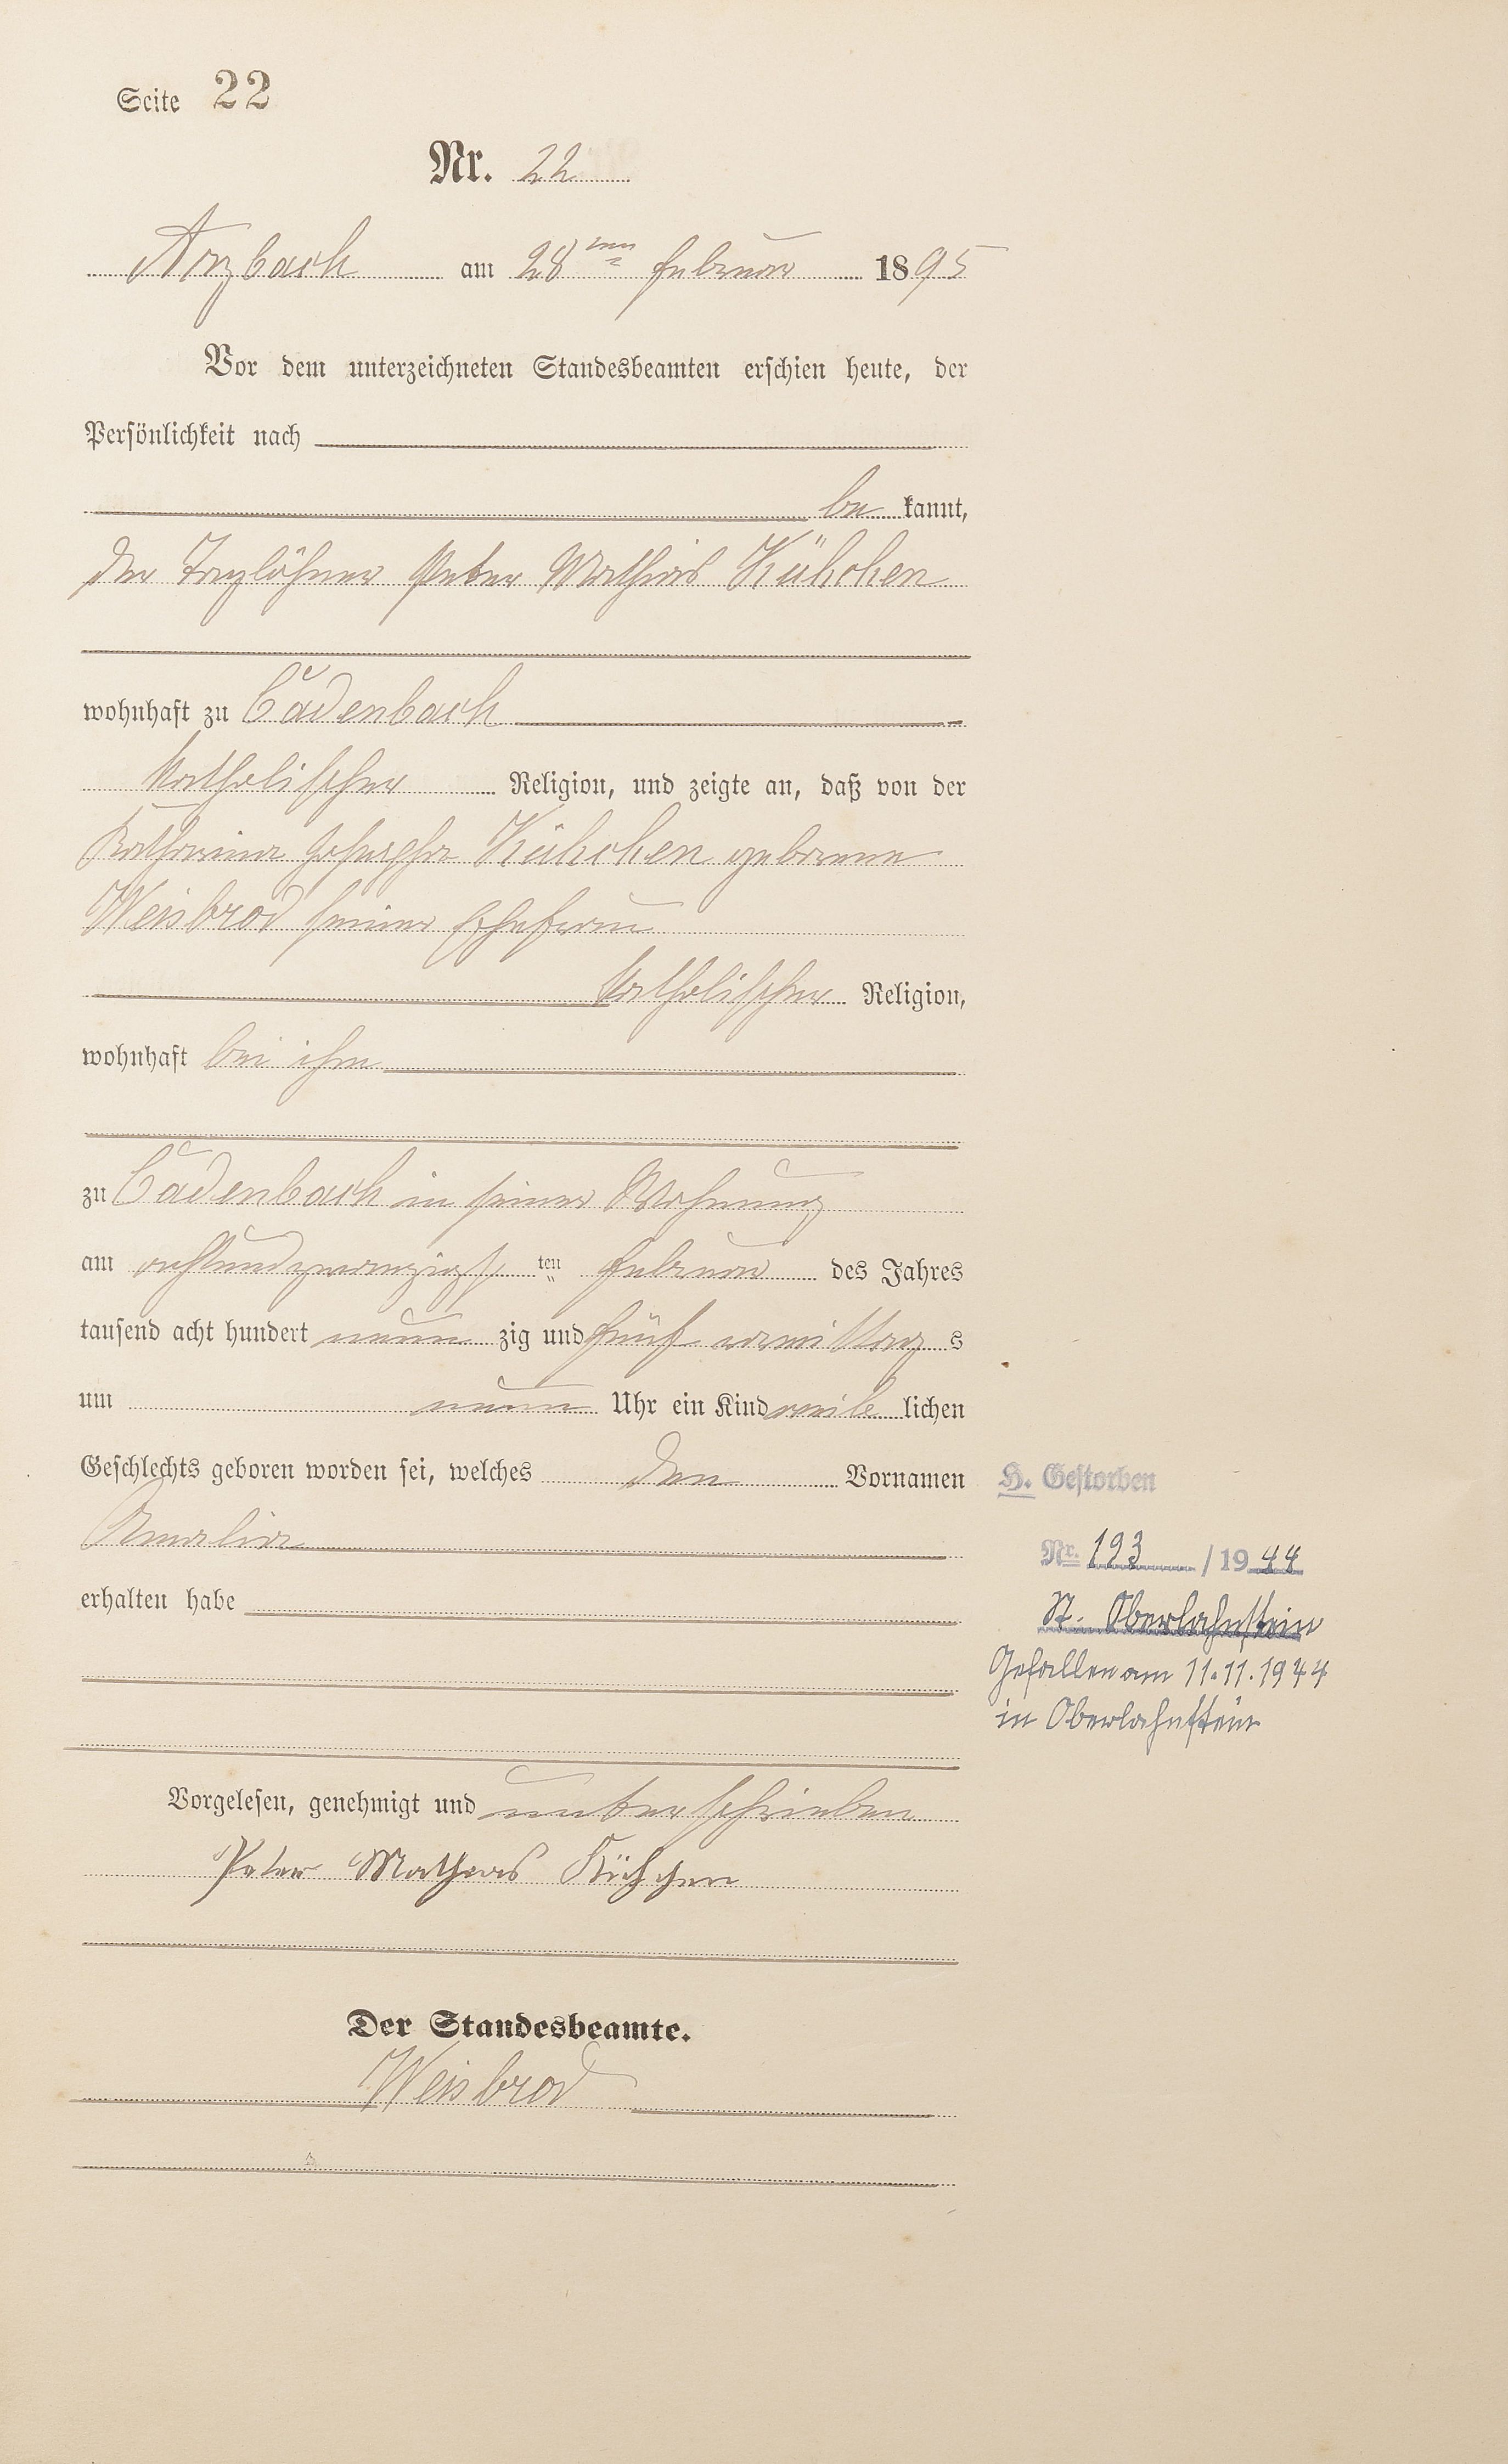 Seite 22
Nr. 22
Arzbach am 28ten Februar 1895
Vor dem unterzeichneten Standesbeamten erschien heute, der
Persönlichkeit nach
be kannt,
der Taglöhner Peter Mathias Kühchen
wohnhaft zu Cadenbach
katholischer Religion, und zeigte an, daß von der
Katharina Josepha Kühchen geborene
Weisbrod seiner Ehefrau
katholischer Religion,
wohnhaft bei ihm
zu Cadenbach in seiner Wohnung
am achtundzwanzigst ten Februar des Jahres
tausend acht hundert neun zig und fünf vormittag s
um neun Uhr ein Kind weib lichen
Geschlechts geboren worden sei, welches den Vornamen
Amalia
erhalten habe
H. Gestorben
Nr. 193 / 19 44
St. Oberlahnstein
Gefallen am 11.11.1944
in Oberlahnstein
Vorgelesen, genehmigt und unterschrieben
Peter Mathias Kühchen
Der Standesbeamte.
Weisbrod